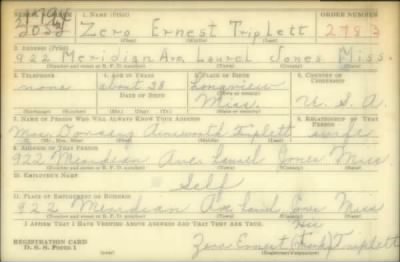 SERIAL NUMBER 1. NAME (Print) ORDER NUMBER
Zero Ernest Triplett 2783
(First) (Middle) (Last)
2. ADDRESS (Print)
922 Meridian Ave Laurel Jones Miss.
(Number and street or R. F. D. number) (Town) (County) (State)
3. TELEPHONE 4. AGE IN YEARS 5. PLACE OF BIRTH 6. COUNTRY OF CITIZENSHIP
none about 38 Longview
DATE OF BIRTH Miss. U. S. A.
(Exchange) (Number) (Mo.) (Day) (Yr.) (State or country)
7. NAME OF PERSON WHO WILL ALWAYS KNOW YOUR ADDRESS 8. RELATIONSHIP OF THAT PERSON
Mrs. Ainsworth Triplett wife
(Mr., Mrs., Miss) (First) (Middle) (Last)
9. ADDRESS OF THAT PERSON
922 Meridian Ave. Laurel Jones Miss
(Number and street or R. F. D. number) (Town) (County) (State)
10. EMPLOYER'S NAME
Self
11. PLACE OF EMPLOYMENT OR BUSINESS
922 Meridian Ave Laurel Jones Miss
(Number and street or R. F. D. number) (Town) (County) (State)
I AFFIRM THAT I HAVE VERIFIED ABOVE ANSWERS AND THAT THEY ARE TRUE.
His
REGISTRATION CARD Zero Ernest (mark) Triplett
D. S. S. FORM 1 (over) (Registrant's signature)